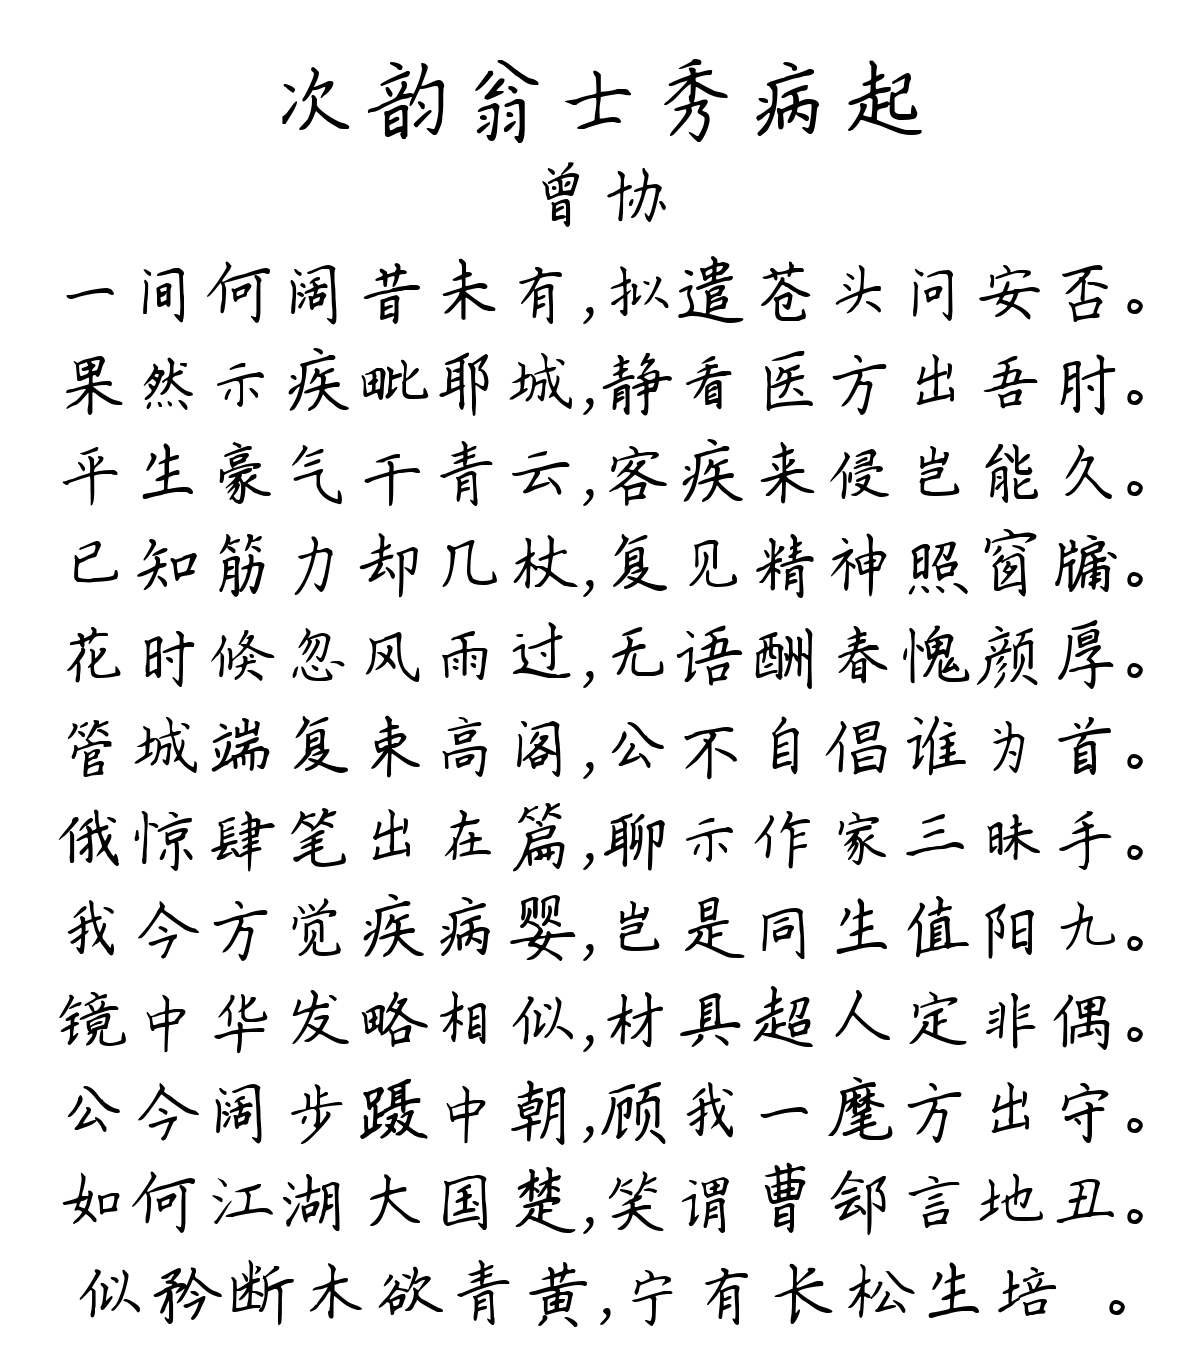 次韵翁士秀病起
曾协
一间何阔昔未有,拟遣苍头问安否。
果然示疾毗耶城,静看医方出吾肘。
平生豪气干青云,客疾来侵岂能久。
已知筋力却几杖,复见精神照窗牖。
花时倏忽风雨过,无语酬春愧颜厚。
管城端复束高阁,公不自倡谁为首。
俄惊肆笔出在篇,聊示作家三昧手。
我今方觉疾病婴,岂是同生值阳九。
镜中华发略相似,材具超人定非偶。
公今阔步蹑中朝,顾我一麾方出守。
如何江湖大国楚,笑谓曹郐言地丑。
似矜断木欲青黄,宁有长松生培 。